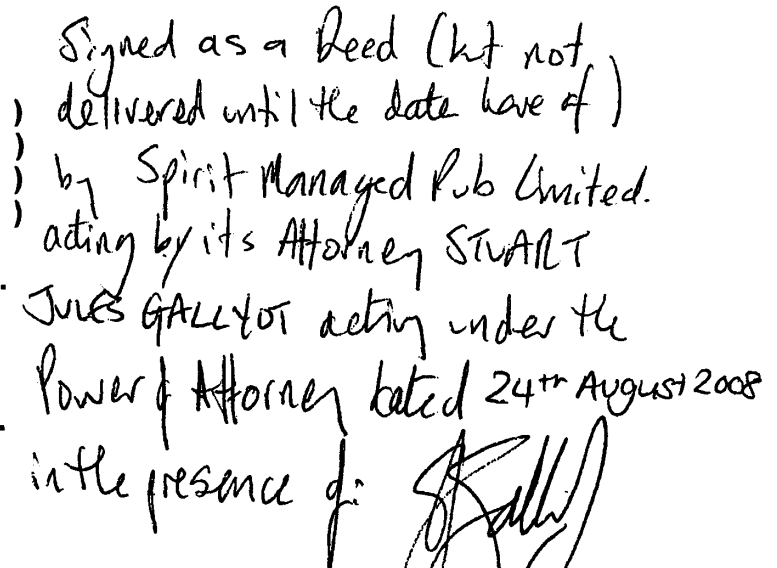 Signed as a Deed (but not
delivered until the date hereof)
by Spirit Managed Pub Limited.
acting by its Attorney STUART
JULES GALLYOT acting under the
Power of Attorney dated 24th August 2008
in the presence of: